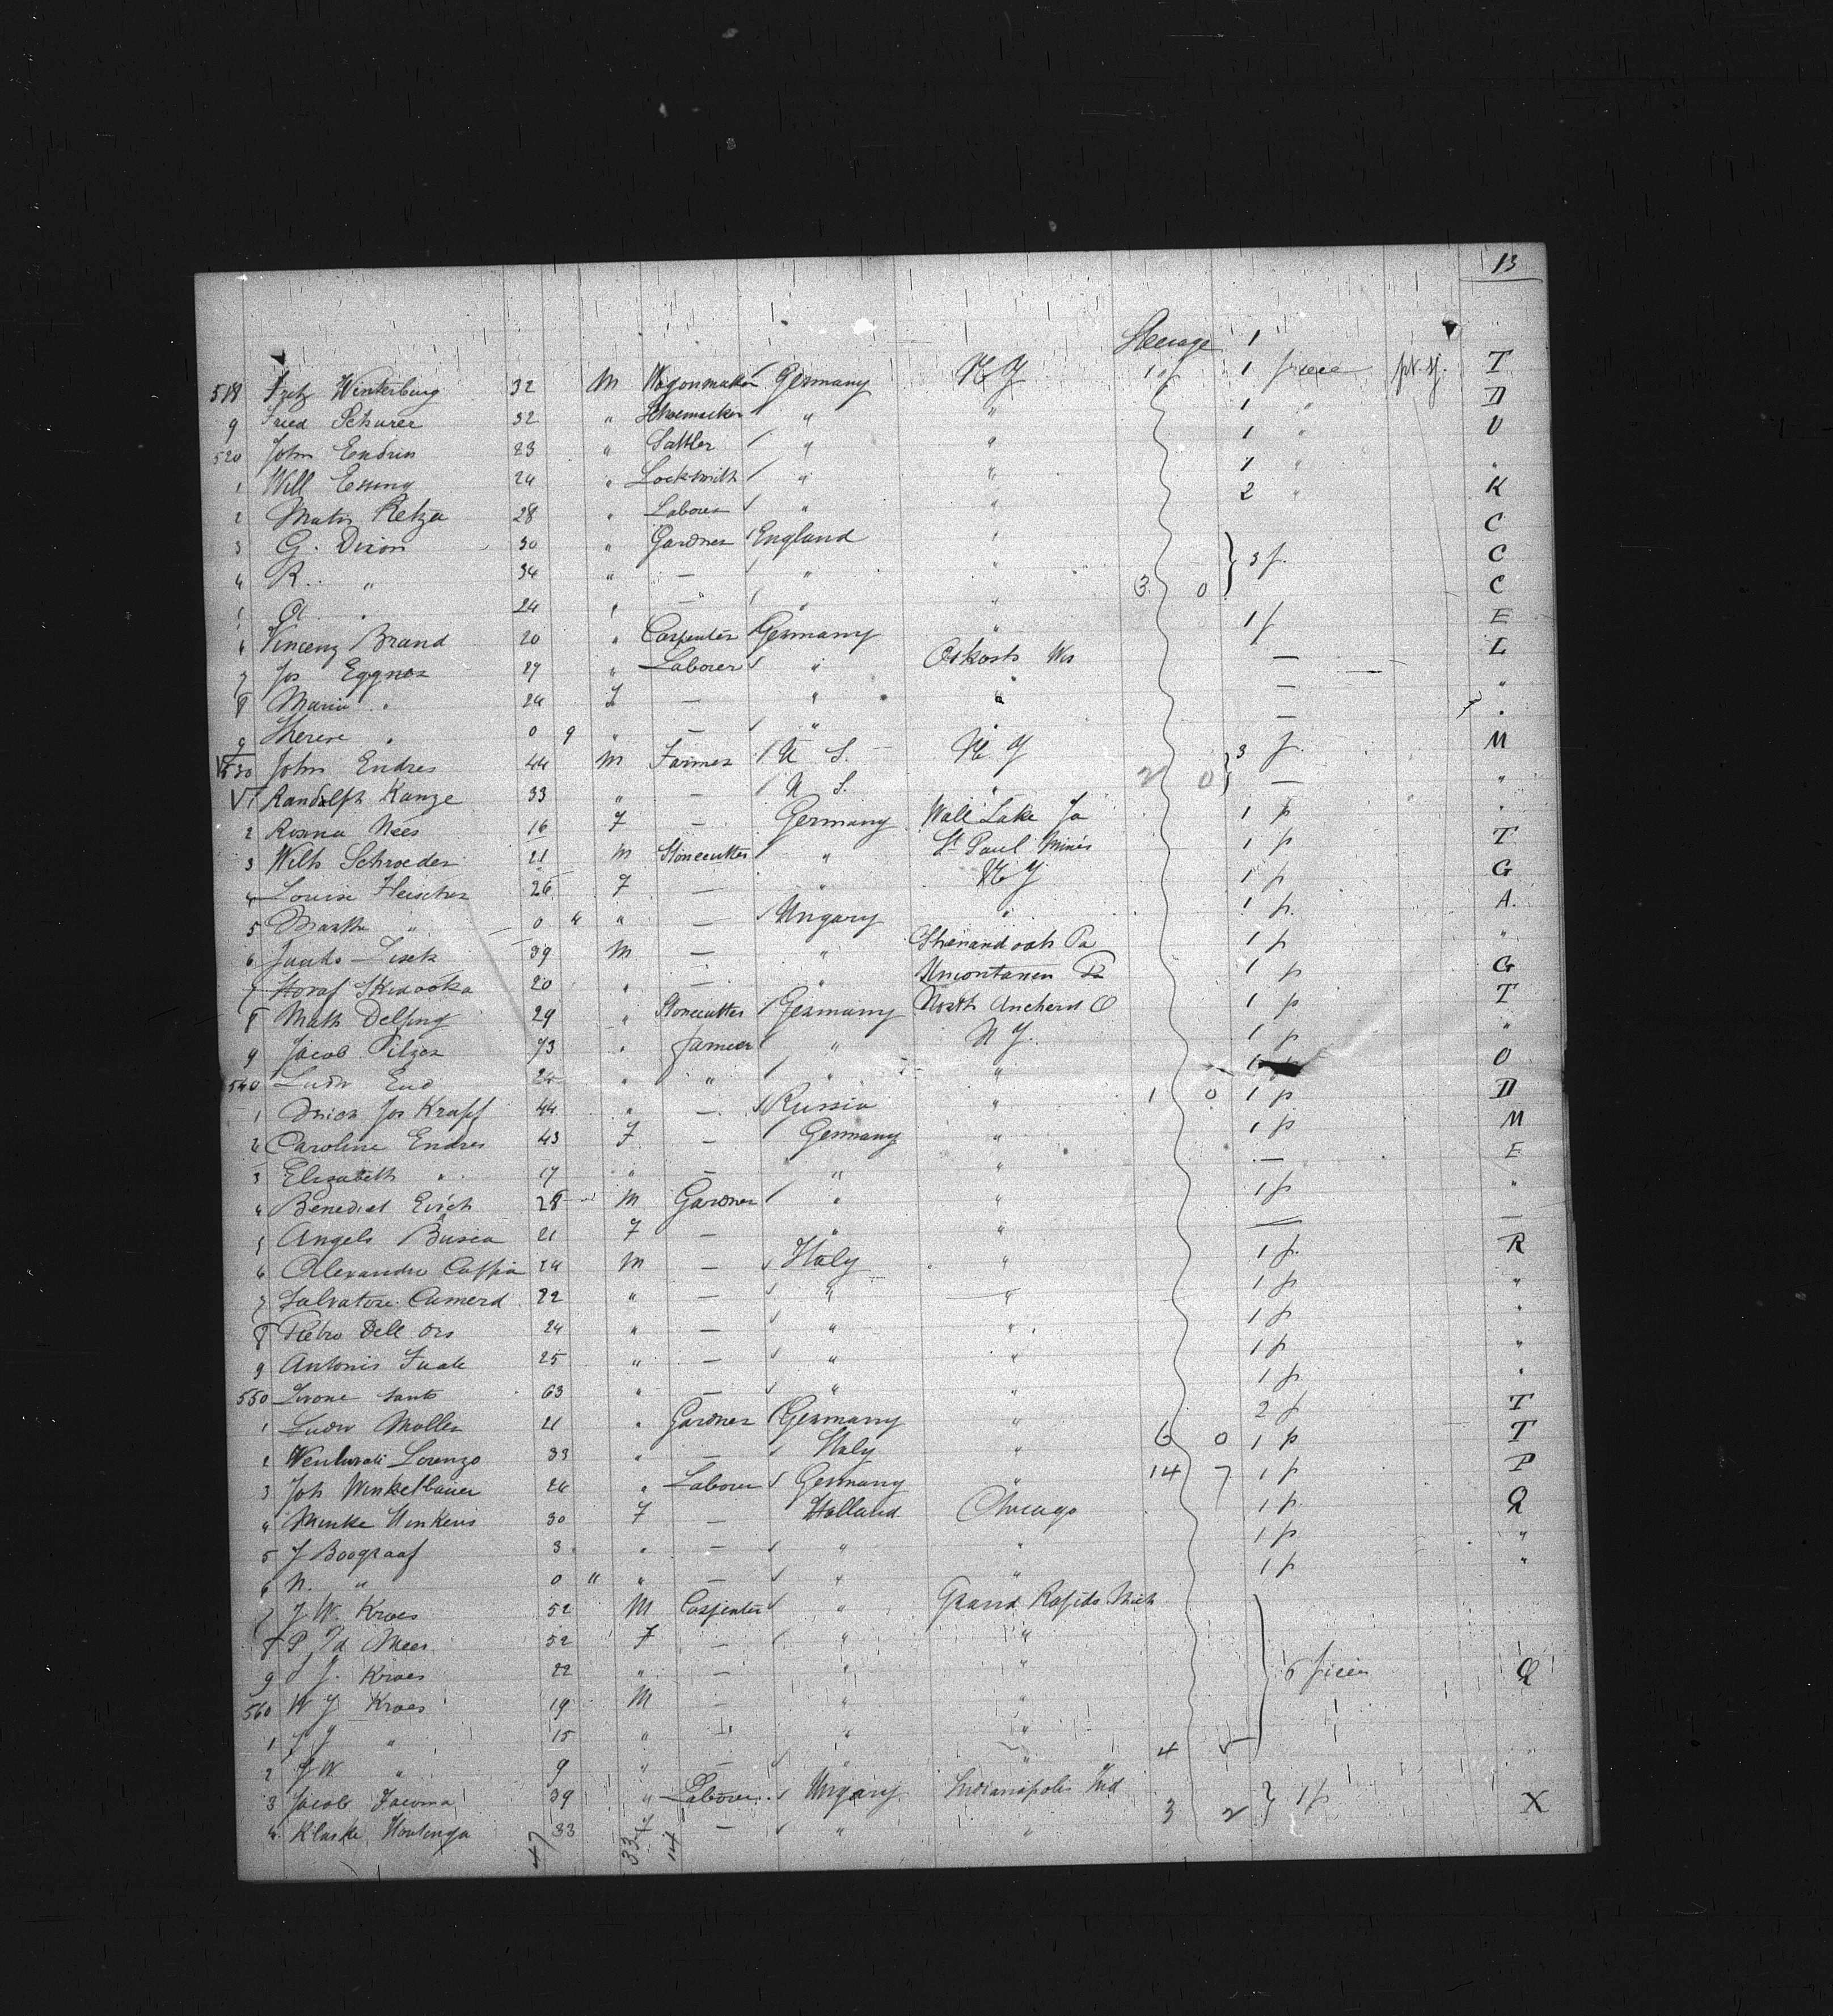 13
Steerage 1
518 Fritz Winterburg 32 M Wagonmaker Germany N Y 1 piece T
9 Fried Schurer 32 " Shoemaker " " 1 " D
520 John Endrin 23 " Sattler " " 1 " U
1 Will Essing 24 " Locksmith " " 1 " "
2 Matis Retza 28 " Laborer " " 2 " K
3 G. Dixon 30 " Gardner England " C
4 R. " 34 " — " " 3 p. C
5 " 24 " — " " 3 0 C
6 Vincenz Brand 20 " Carpenter Germany " 1 p E
7 Jos Eggner 27 " Laborer " Oskosh Wis — L
8 Maria " 24 F — " " — "
9 Therese " 0 9 " — " " — "
530 John Endres 44 M Farmer U S. N Y 3 p. M
1 Randolph Kunze 33 " — U S. " 2 0 — "
2 Rosina Nees 16 F — Germany Wall Lake Ja 1 p "
3 Wilh Schroeder 21 M Stonecutter " St Paul Mines 1 p T
4 Louise Fleischer 26 F — " N Y 1 p G
5 Martha " 0 " " — Ungary " 1 p. A.
6 Lisek 39 M — " Shenandoah Pa 1 p "
7 20 " — " Uniontown Pa 1 p G
8 Math Delfing 29 " Stonecutter Germany North O 1 p T
9 Jacob Pilger 73 " farmer " N Y. 1 p "
540 Ludw End 24 " " " " 1 p O
1 Jos Krapf 44 " — Russia " 1 0 1 p D
2 Caroline Endres 43 F — Germany " 1 p M
3 Elizabeth " 17 " — " " — E
4 Benedict Eirich 28 M Gardner " " 1 p "
5 Angels Busca 21 F — " " — —
6 Alexandre Coppia 24 M — Italy " 1 p. R
7 Salvatore Camerd 22 " — " " 1 p "
8 Pietro Dell Ors 24 " — " " 1 p "
9 Antonis 25 " — " " 1 p "
550 Santo 63 " — " " 1 p "
1 Ludw Moller 21 " Gardner Germany " 2 p T
2 Lorenzo 33 " — Italy " 6 0 1 p T
3 Joh Winkelbauer 24 " Laborer Germany " 14 7 1 p P
4 30 F — Holland Chicago 1 p. Q
5 J Boograaf 3 " — " " 1 p "
6 N. " 0 " " — " " 1 p "
7 J W. Kroes 52 M Carpenter " Grand Rapids Mich
8 P Meer 52 F — " "
9 J. Kroes 22 " — " " 6 pieces Q
560 W J Kroes 19 M — " "
1 J J " 15 " — " "
2 J W " 9 " — " " 4 5
3 Jacob 39 " Laborer Ungary Indianapolis Ind 1 p
4 Klaske Houtenga 33 F — " " 3 2 X
47 33 14